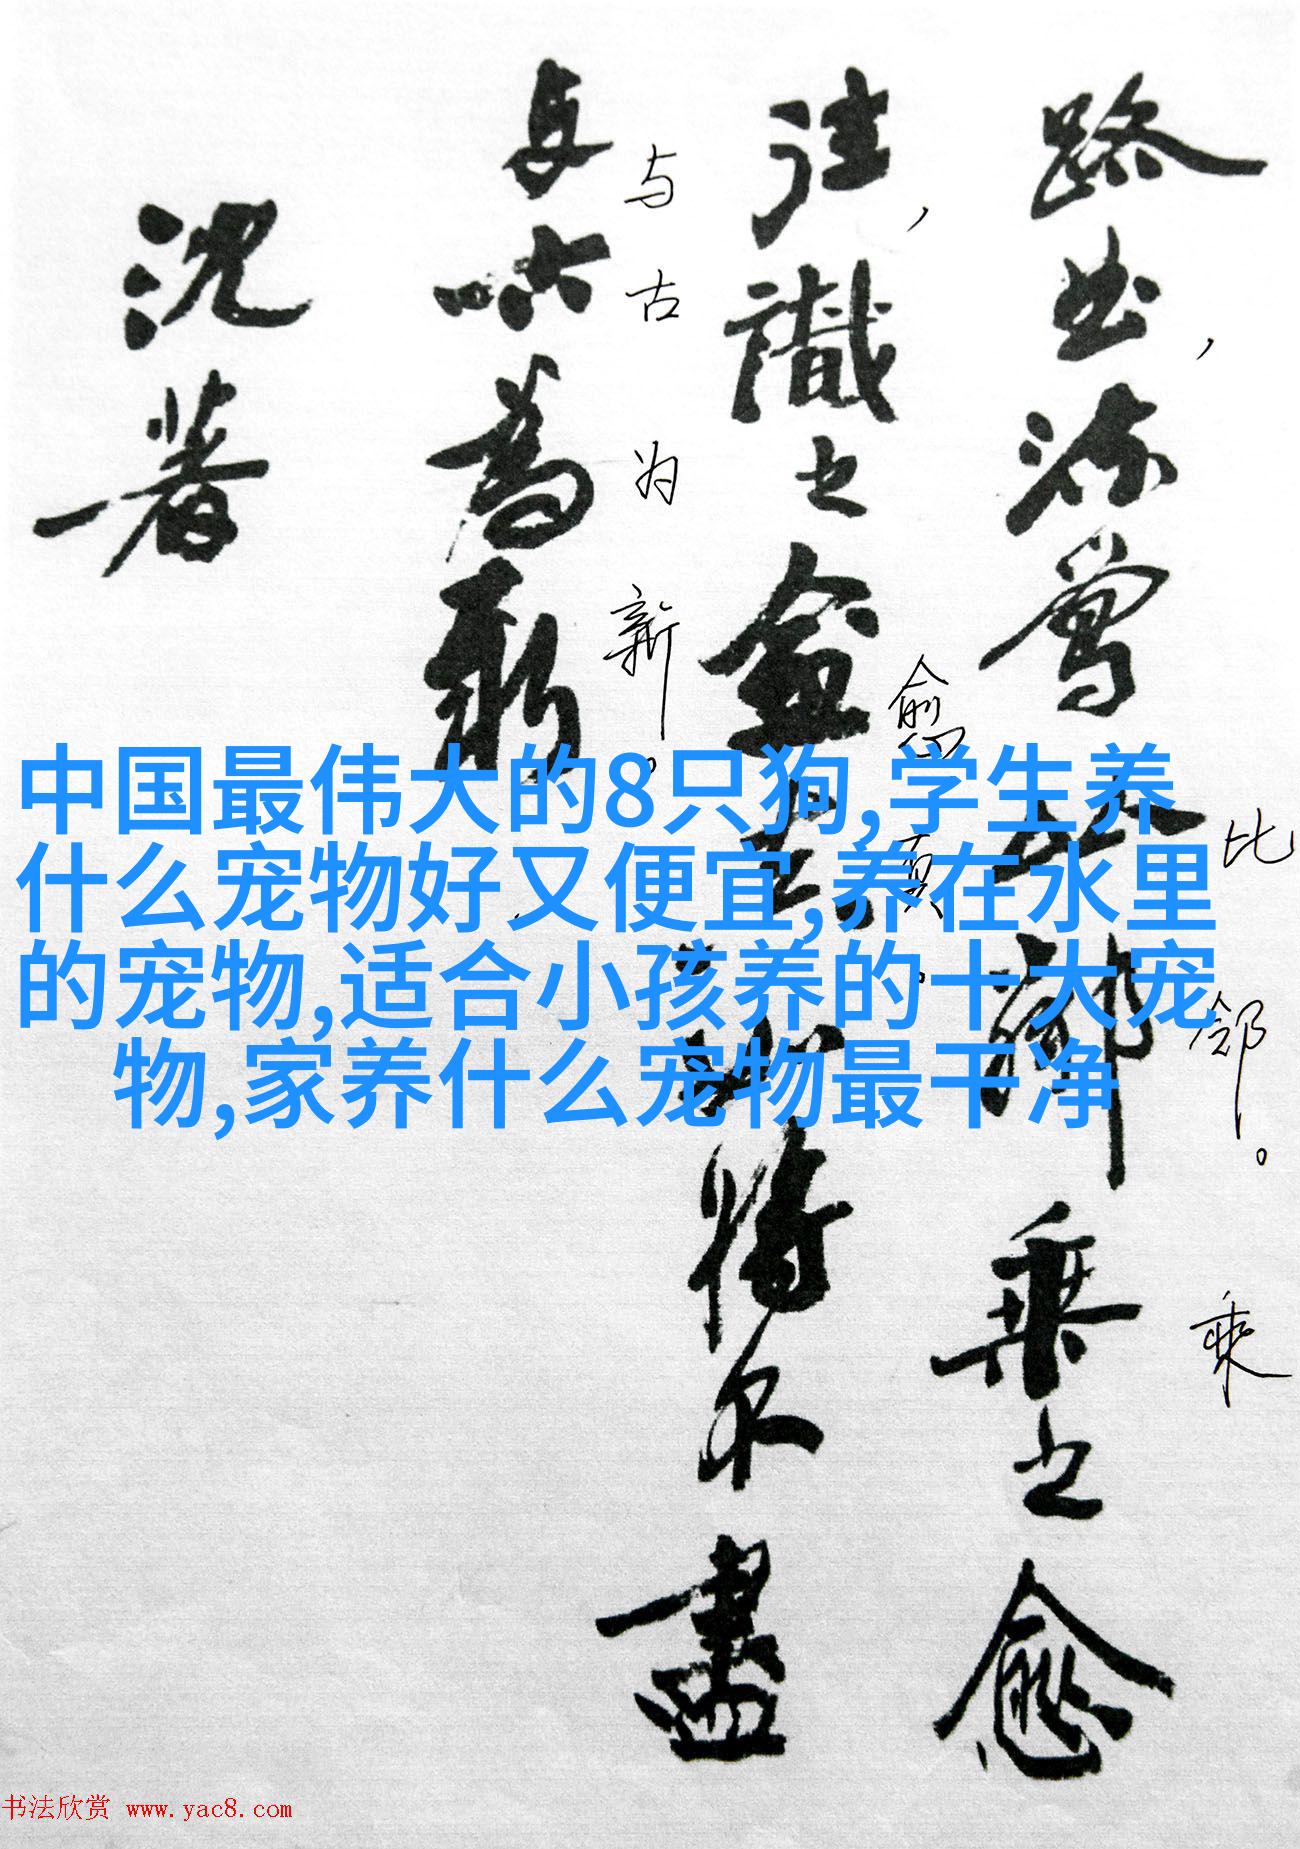 路曲,流鶯比鄰乘之愈
比邻。乘
往,識之愈真如將不盡
愈真。
与古為新
与古为新。
沈著
中国最伟大的8只狗,学生养
什么宠物好又便宜,养在水里
的宠物,适合小孩养的十大宠
物,家养什么宠物最干净
书法欣赏 www.yac8.com